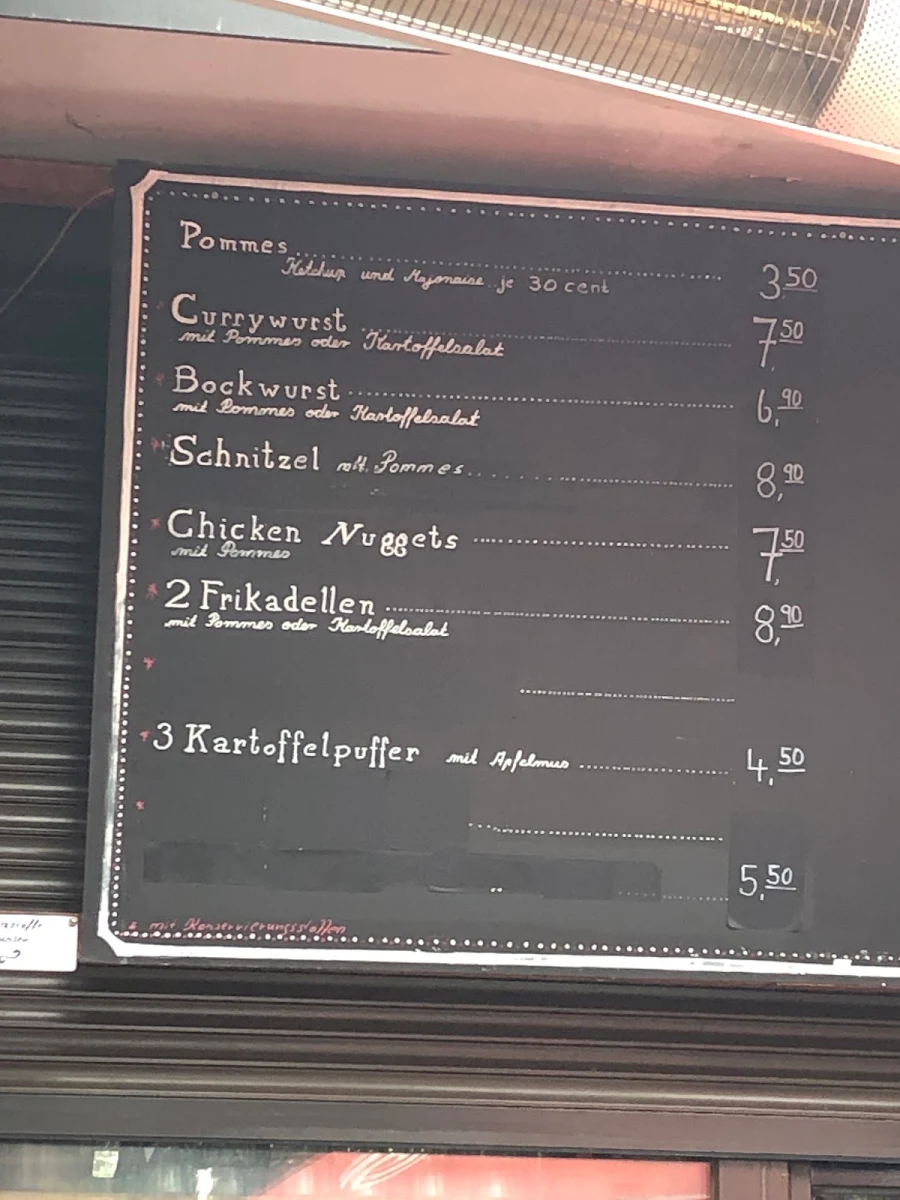 Pommes
3,50
Ketchup und Majonaise je 30 cent
* Currywurst
7,50
mit Pommes oder Kartoffelsalat
* Bockwurst
6,90
mit Pommes oder Kartoffelsalat
* Schnitzel mit Pommes
8,90
* Chicken Nuggets
7,50
mit Pommes
* 2 Frikadellen
8,90
mit Pommes oder Kartoffelsalat
*
* 3 Kartoffelpuffer mit Apfelmus
4,50
*
5,50
* mit Konservierungsstoffen